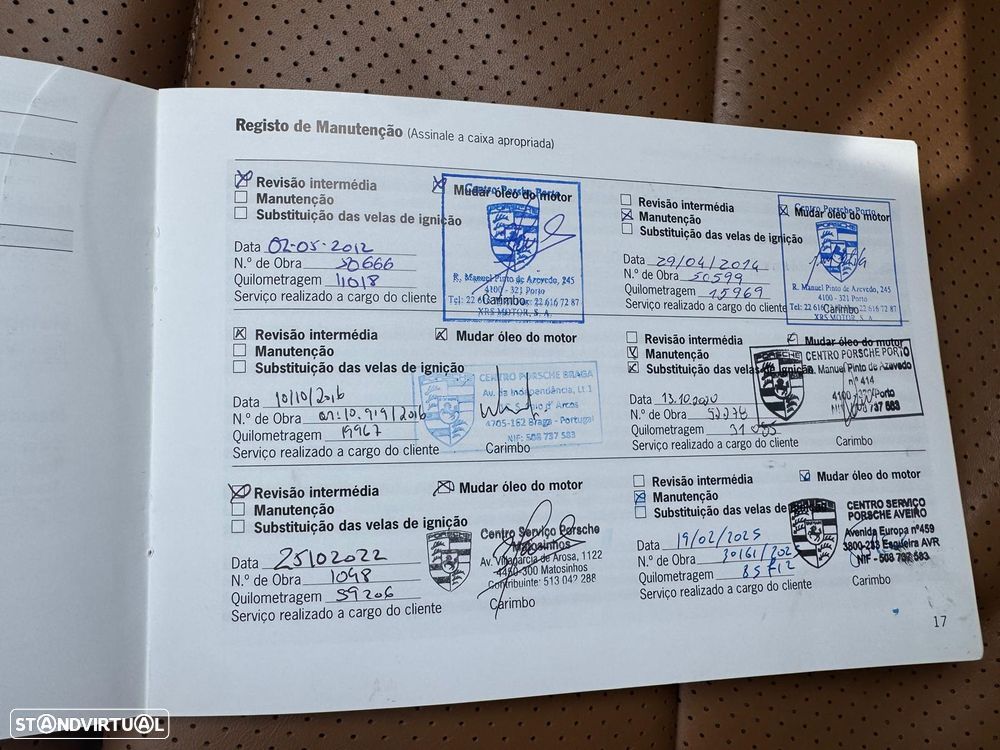 Registo de Manutenção (Assinale a caixa apropriada)
Revisão intermédia
Mudar óleo do motor
Manutenção
Substituição das velas de ignição
Data 02-05-2012
N.º de Obra 50666
Quilometragem 11018
Serviço realizado a cargo do cliente
Carimbo
Centro Porsche Porto
R. Manuel Pinto de Azevedo, 245
4100 - 321 Porto
XRS MOTOR, S. A.
Revisão intermédia
Manutenção
Mudar óleo do motor
Substituição das velas de ignição
Data 29/04/2014
N.º de Obra 50599
Quilometragem 15969
Serviço realizado a cargo do cliente
Carimbo
Centro Porsche Porto
R. Manuel Pinto de Azevedo, 245
4100 - 321 Porto
XRS MOTOR, S. A.
Revisão intermédia
Mudar óleo do motor
Manutenção
Substituição das velas de ignição
Data 10/10/2016
N.º de Obra
Quilometragem 19967
Serviço realizado a cargo do cliente
Carimbo
CENTRO PORSCHE BRAGA
Av. da Independência, Lt.1
4705-162 Braga - Portugal
NIF: 508 737 583
Revisão intermédia
Mudar óleo do motor
Manutenção
Substituição das velas de ignição
Data 13.10.2020
N.º de Obra
Quilometragem
Serviço realizado a cargo do cliente
Carimbo
PORSCHE
CENTRO PORSCHE PORTO
Manuel Pinto de Azevedo
nº 414
4100 Porto
737 583
Revisão intermédia
Mudar óleo do motor
Manutenção
Substituição das velas de ignição
Data 25102022
N.º de Obra 1048
Quilometragem 59206
Serviço realizado a cargo do cliente
Carimbo
Centro Serviço Porsche
Matosinhos
Av. Villagarcia de Arosa, 1122
4460-300 Matosinhos
Contribuinte: 513 042 288
Revisão intermédia
Mudar óleo do motor
Manutenção
Substituição das velas de
Data 19/02/2025
N.º de Obra
Quilometragem
Serviço realizado a cargo do cliente
Carimbo
CENTRO SERVIÇO
PORSCHE AVEIRO
Avenida Europa nº459
Esgueira AVR
NIF - 508 737 583
17
STANDVIRTUAL